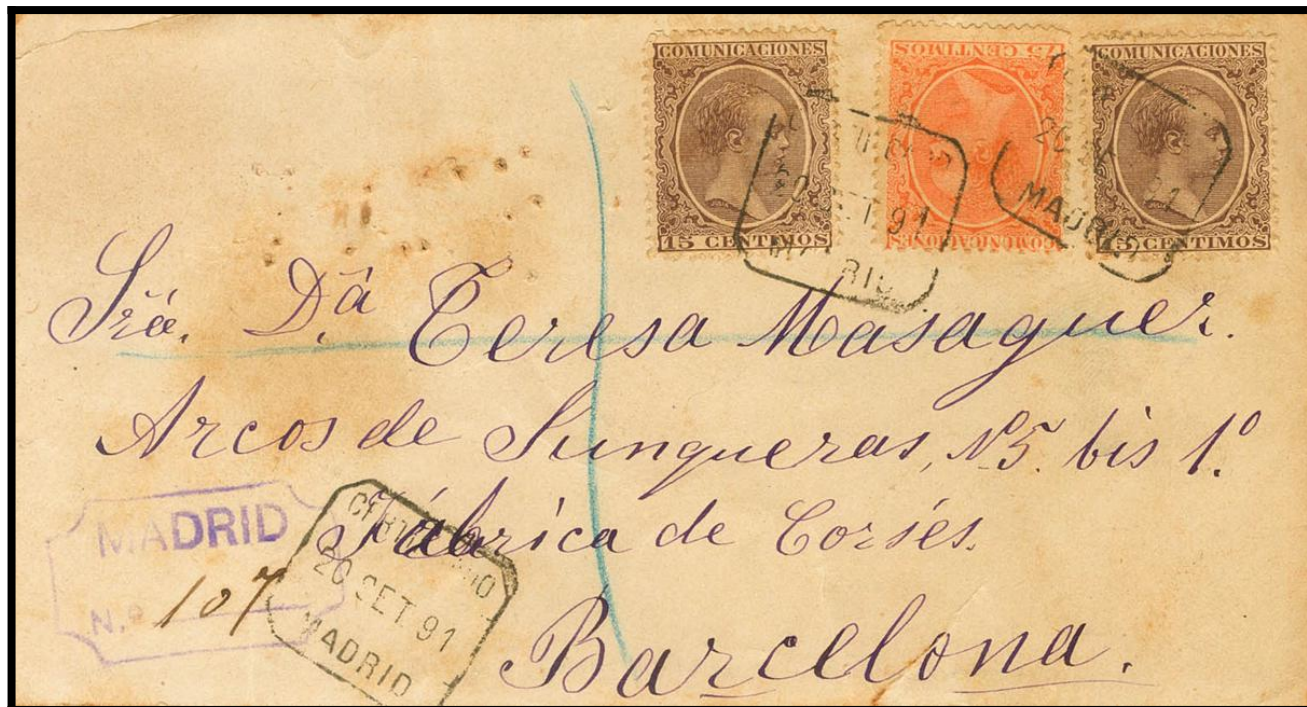 COMUNICACIONES
15 CENTIMOS
75 CENTIMOS
COMUNICACIONES
COMUNICACIONES
15 CENTIMOS
20 SET 91
MADRID
MADRID
Sra. D.ª Teresa Masaguer.
Arcos de Junqueras, Nº 5. bis 1.º
Fábrica de Corsés.
Barcelona.
MADRID
N.º 107
CERTIFICADO
20 SET 91
MADRID